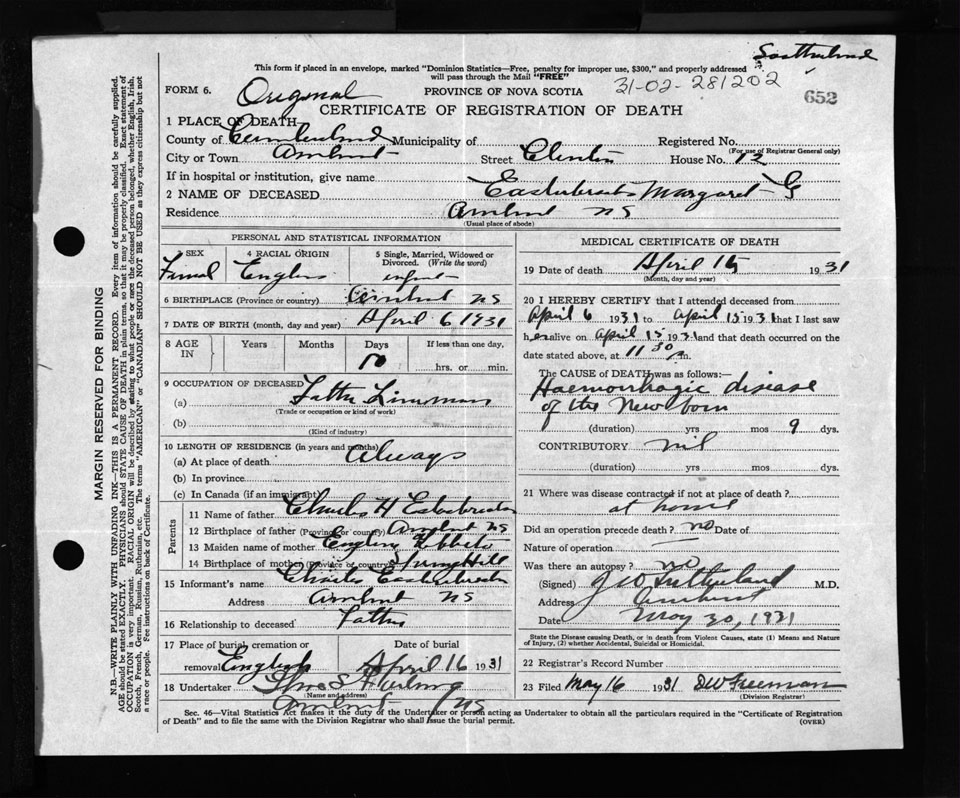 Sootherland
This form if placed in an envelope, marked "Dominion Statistics—Free, penalty for improper use, $300," and properly addressed
will pass through the Mail "FREE"
FORM 6.
Original
PROVINCE OF NOVA SCOTIA
31-02-281202
652
CERTIFICATE OF REGISTRATION OF DEATH
1 PLACE OF DEATH
County of Cumberland Municipality of Registered No.
(For use of Registrar General only)
City or Town Amherst Street Clinton House No. 12
If in hospital or institution, give name
2 NAME OF DECEASED Easterbrooks Margaret G
Residence Amherst NS
(Usual place of abode)
PERSONAL AND STATISTICAL INFORMATION
3 SEX Femal
4 RACIAL ORIGIN English
5 Single, Married, Widowed or Divorced. (Write the word) infant
6 BIRTHPLACE (Province or country) Amherst NS
7 DATE OF BIRTH (month, day and year) April 6 1931
8 AGE IN Years Months Days 10 If less than one day, hrs. or min.
9 OCCUPATION OF DECEASED
(a) Father Lineman
(Trade or occupation or kind of work)
(b)
(Kind of industry)
10 LENGTH OF RESIDENCE (in years and months)
(a) At place of death Always
(b) In province
(c) In Canada (if an immigrant)
Parents
11 Name of father Charles H Esterbrooks
12 Birthplace of father (Province or country) Amherst NS
13 Maiden name of mother
14 Birthplace of mother (Province or country) Spring Hill
15 Informant's name Charles Easterbrooks
Address Amherst NS
16 Relationship to deceased Father
17 Place of burial, cremation or removal English
Date of burial April 16 1931
18 Undertaker
(Name and address)
Amherst NS
MEDICAL CERTIFICATE OF DEATH
19 Date of death April 15 1931
(Month, day and year)
20 I HEREBY CERTIFY that I attended deceased from
April 6 1931 to April 15 1931 that I last saw
her alive on April 15 1931 and that death occurred on the
date stated above, at 11 30 m.
The CAUSE OF DEATH was as follows:—
Haemorrhagic disease
of the New born
(duration) yrs mos 9 dys.
CONTRIBUTORY nil
(duration) yrs mos dys.
21 Where was disease contracted if not at place of death?
at home
Did an operation precede death? no Date of
Nature of operation
Was there an autopsy? no
(Signed) J W Sutherland M.D.
Address Amherst
Date May 30, 1931
State the Disease causing Death, or in death from Violent Causes, state (1) Means and Nature
of Injury, (2) whether Accidental, Suicidal or Homicidal.
22 Registrar's Record Number
23 Filed May 16 1931 DW Freeman
(Division Registrar)
Sec. 46—Vital Statistics Act makes it the duty of the Undertaker or person acting as Undertaker to obtain all the particulars required in the "Certificate of Registration
of Death" and to file the same with the Division Registrar who shall issue the burial permit.
(OVER)
MARGIN RESERVED FOR BINDING
N.B—WRITE PLAINLY WITH UNFADING INK—THIS IS A PERMANENT RECORD. Every item of information should be carefully supplied.
AGE should be stated EXACTLY. PHYSICIANS should STATE CAUSE OF DEATH in plain terms, so that it may be properly classified. Exact statement of
OCCUPATION is very important. RACIAL ORIGIN will be described by stating to what people or race the deceased person belonged, whether English, Irish,
Scotch, French, German, Russian, Ruthenian, etc. The terms "AMERICAN" or "CANADIAN" SHOULD NOT BE USED as they express citizenship but not
a race or people. See instructions on back of Certificate.